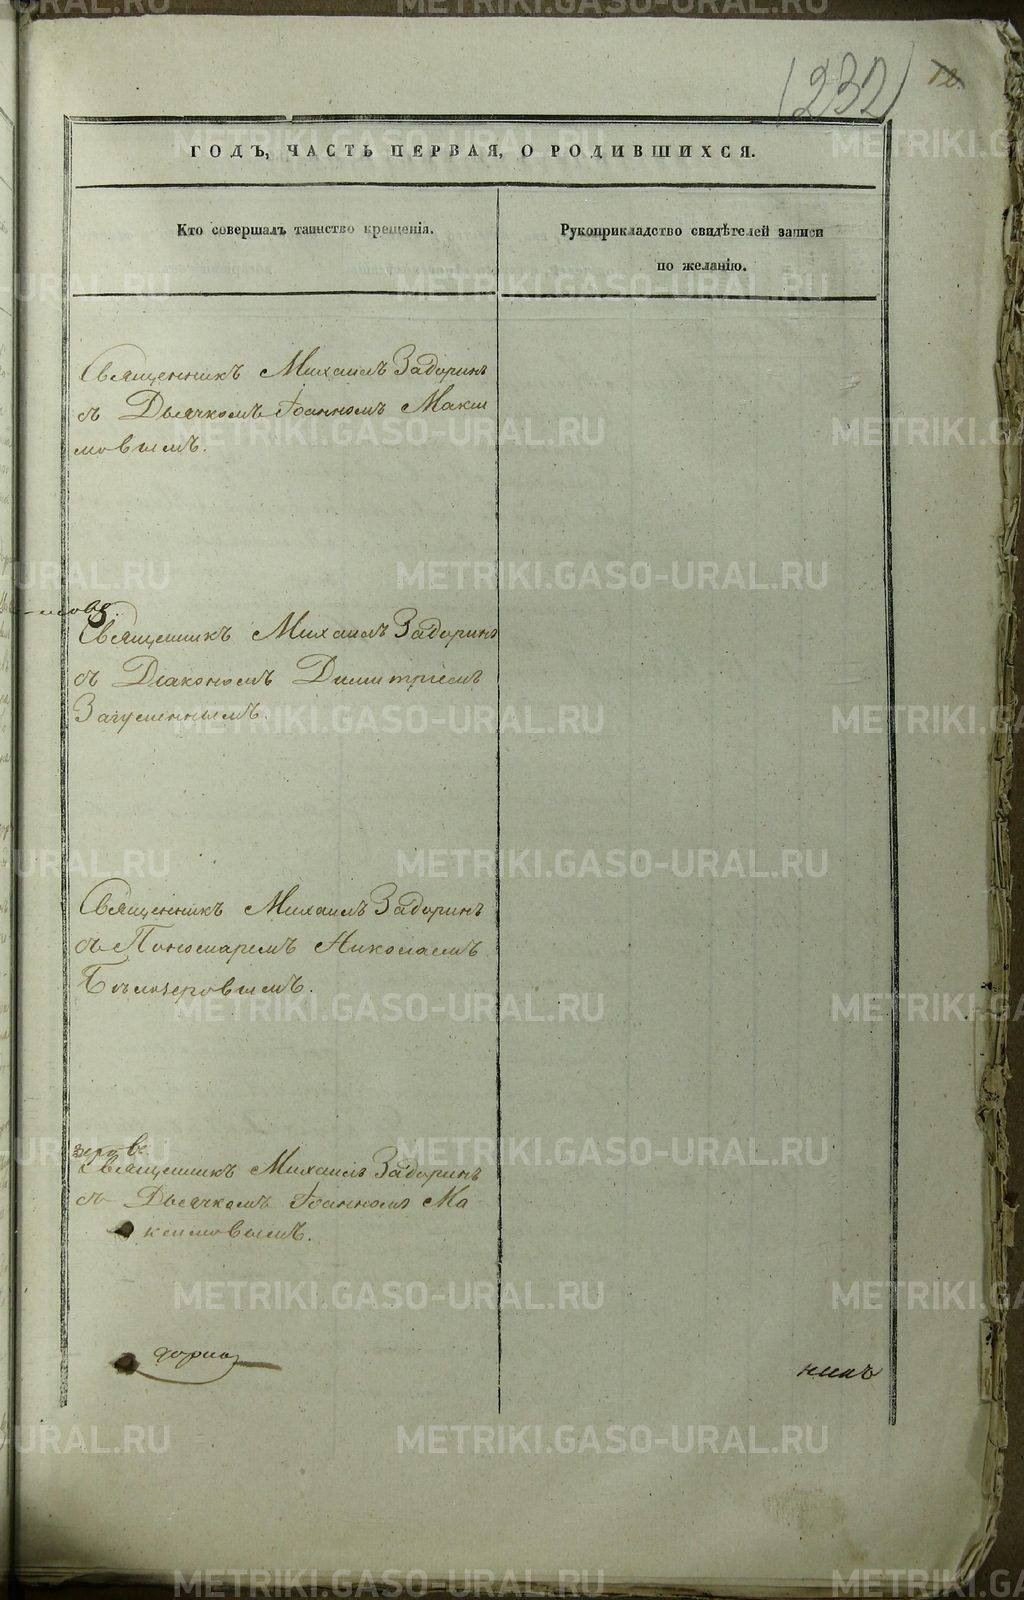 (232)
12.
ГОДЪ, ЧАСТЬ ПЕРВАЯ, О РОДИВШИХСЯ.
Кто совершалъ таинство крещенія.
Рукоприкладство свидѣтелей записи
по желанію.
Священникъ Михаилъ Задоринъ
съ Дьячкомъ Іоанномъ Макси
мовымъ.
Священникъ Михаилъ Задоринъ
съ Діакономъ Димитріемъ
Загуменнымъ.
Священникъ Михаилъ Задоринъ
съ Пономаремъ Николаемъ
Бѣлозеровымъ.
Священникъ Михаилъ Задоринъ
съ Дьячкомъ Іоанномъ Ма
ксимовымъ.
никъ
METRIKI.GASO-URAL.RU